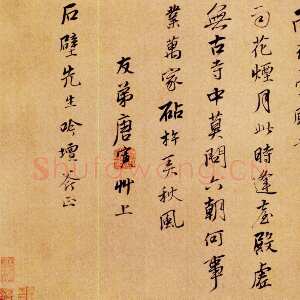 司花煙月此時逢臺殿虛
無古寺中莫問六朝何事
業萬家砧杵美秋風
友弟唐寅艸上
石壁先生吟壇 正
Shufawang.cn